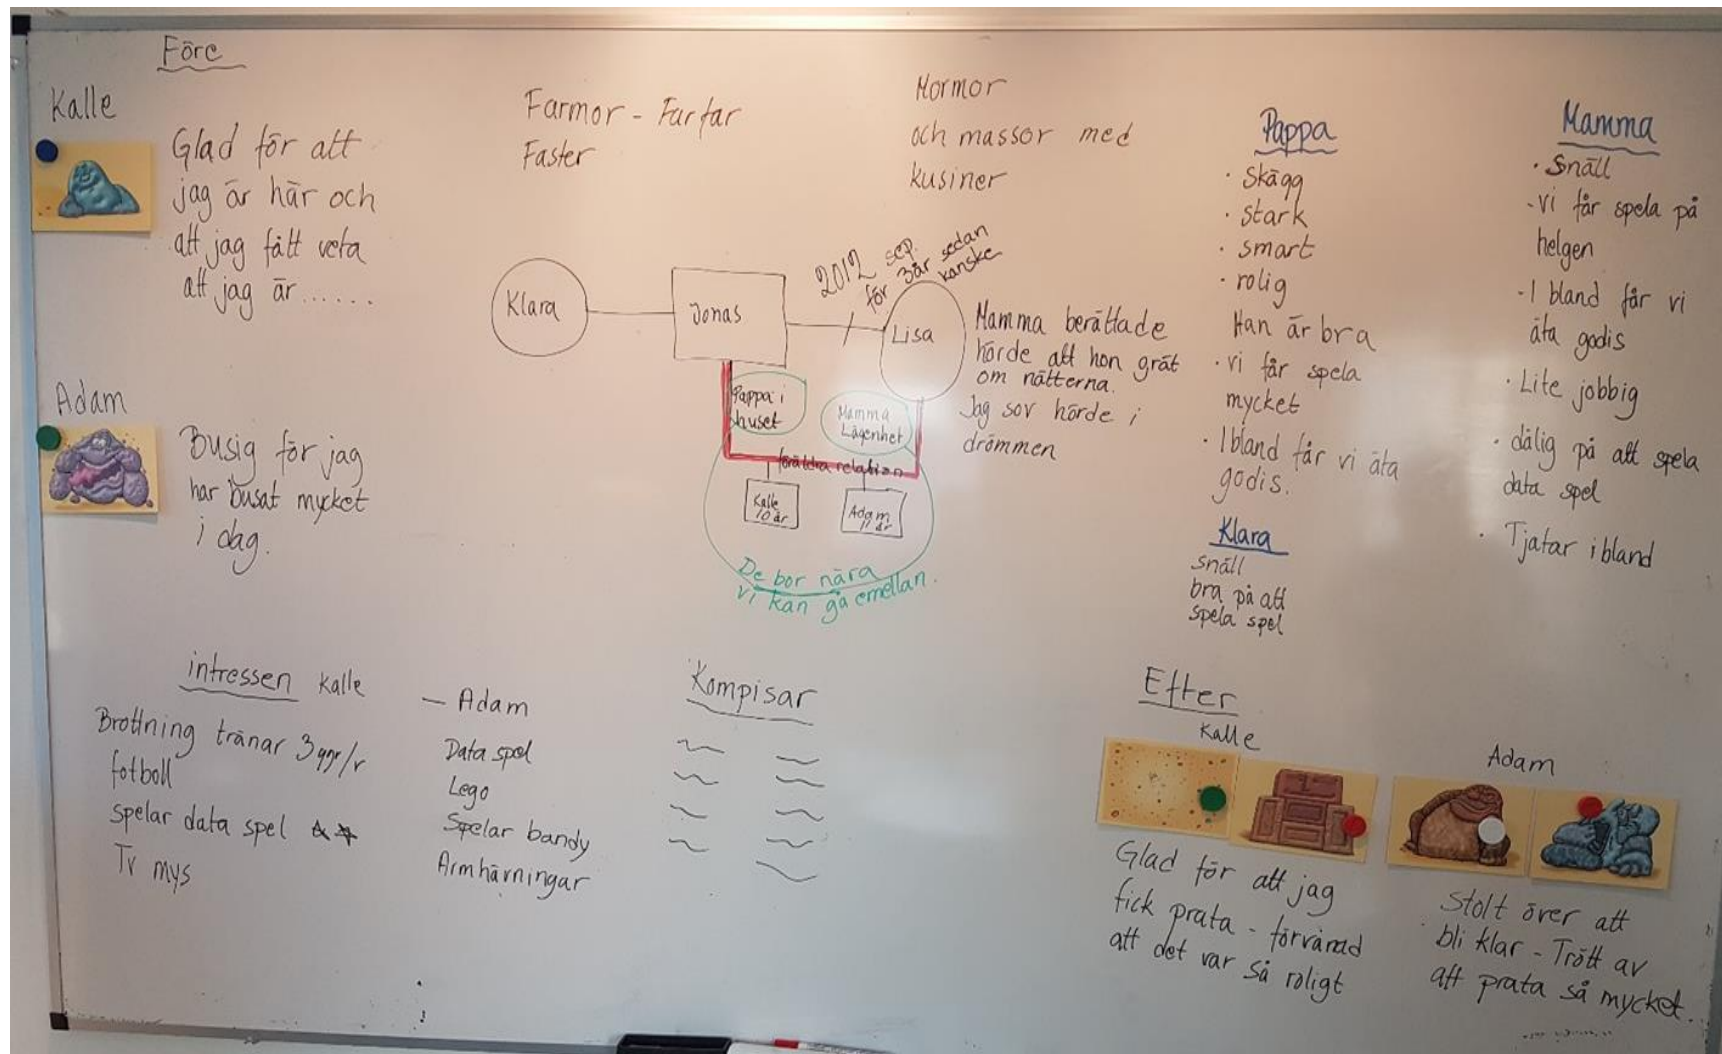 Före
Kalle
Glad för att
jag är här och
att jag fått veta
att jag är......
Adam
Busig för jag
har busat mycket
i dag.
Farmor - Farfar
Faster
Mormor
och massor med
kusiner
Klara
Jonas
2012 sep.
för 3år sedan
kanske
Lisa
Mamma berättade
hörde att hon grät
om nätterna.
Jag sov hörde i
drömmen
Pappa i
huset
Mamma
Lägenhet
föräldra relation
Kalle
10 år
Adam
11 år
De bor nära
vi kan gå emellan.
Pappa
· Skägg
· stark
· smart
· rolig
Han är bra
· vi får spela
mycket
· Ibland får vi äta
godis.
Klara
snäll
bra på att
spela spel
Mamma
· Snäll
- vi får spela på
helgen
- I bland får vi
äta godis
· Lite jobbig
· dålig på att spela
data spel
· Tjatar ibland
intressen Kalle
Brottning tränar 3 ggr/v
fotboll
spelar data spel
TV mys
- Adam
Data spel
Lego
Spelar bandy
Armhävningar
Kompisar
Efter
Kalle
Glad för att jag
fick prata - förvånad
att det var så roligt
Adam
Stolt över att
bli klar - Trött av
att prata så mycket.